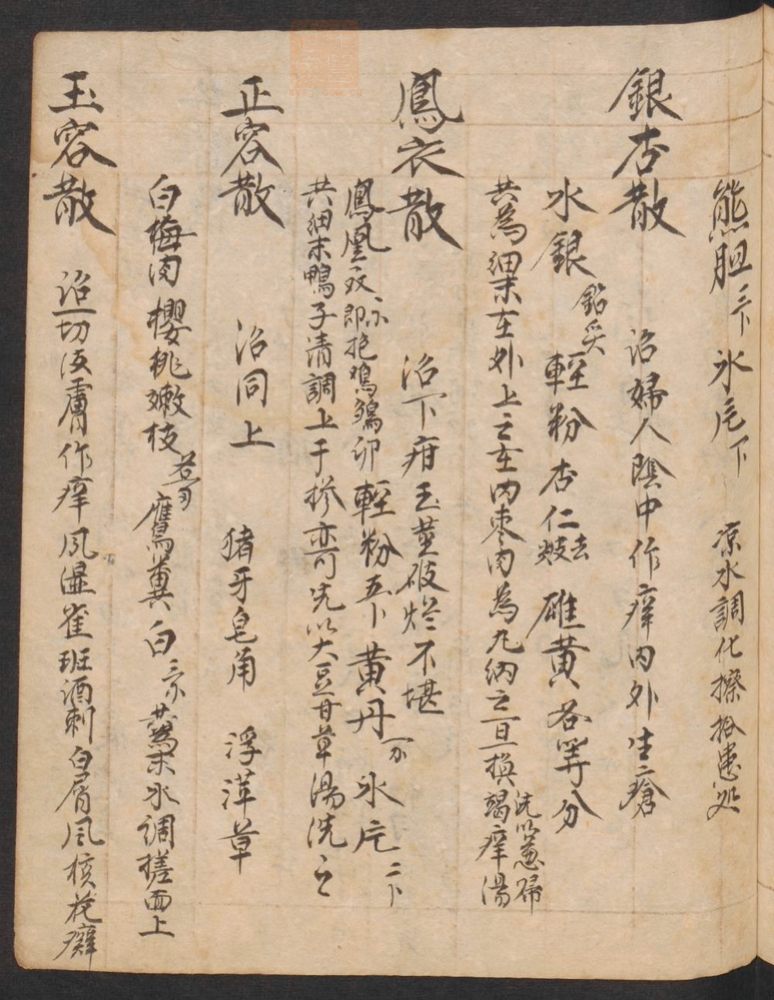 熊胆三卜 氷片卜 凉水調化搽於患处
銀杏散 治婦人陰中作癢内外生瘡
水銀鉛炙 輕粉 杏仁去 雄黄 各等分
共為細末在外上之在内枣肉為丸納之一日一換 洗以葱 竭痒湯
鳳衣散 治下疳玉莖破烂不堪
鳳凰衣 即抱鳮鵝卵 輕粉五卜 黄丹一个 氷片二卜
共細末鴨子清調上干摻亦可先以大豆甘草湯洗之
正容散 治同上 猪牙皂角 浮萍草
白梅肉 櫻桃嫩枝 鷹糞白三个 為末水調搓面上
玉容散 治一切皮膚作痒風濕雀班酒刺白屑風 花癬